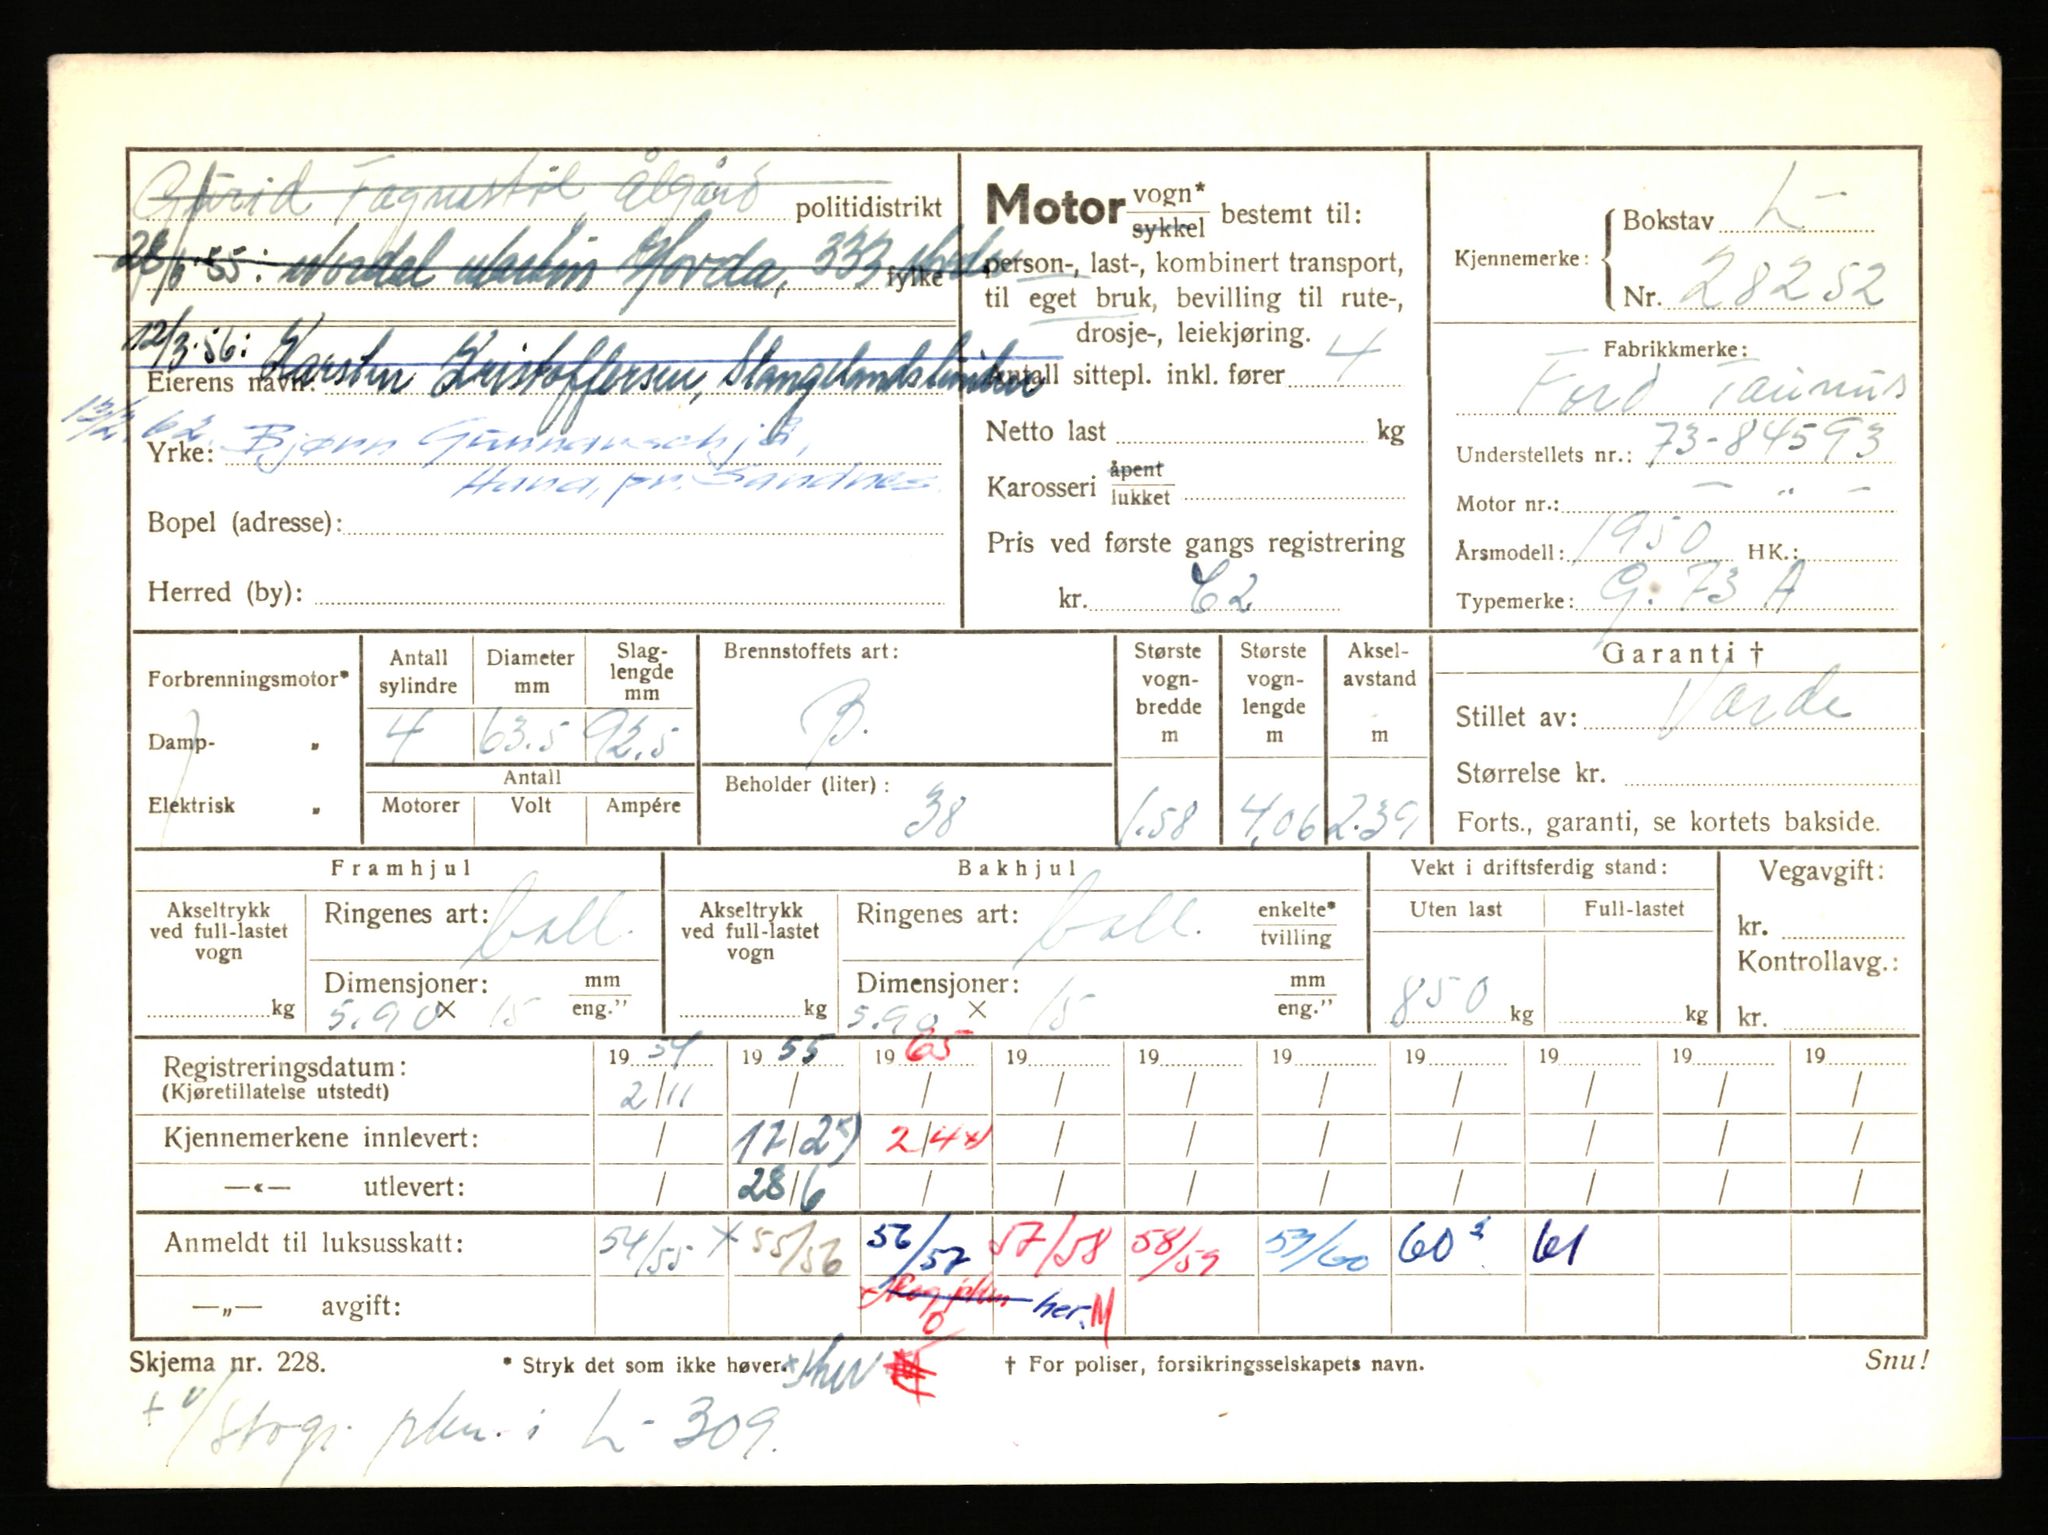 Fagnastøl Ålgård politidistrikt
28/6 55: Martin Horda, 333 fylke
12/3.56: Karsten Kristoffersen, Stangelandslinden
Eierens navn:
13/2. 62. Bjørn
Yrke:
Hana, pr. Sandnes.
Bopel (adresse):
Herred (by):
Motor vogn* / sykkel bestemt til:
person-, last-, kombinert transport,
til eget bruk, bevilling til rute-,
drosje-, leiekjøring.
Antall sittepl. inkl. fører 4
Netto last kg
Karosseri åpent / lukket
Pris ved første gangs registrering
kr. C2
Kjennemerke: Bokstav L-
Nr. 28252
Fabrikkmerke:
Ford Taunus
Understellets nr.: 73-84593
Motor nr.: — " —
Årsmodell: 1950 HK.:
Typemerke: G. 73 A
Forbrenningsmotor*
Damp- „
Elektrisk „
Antall sylindre Diameter mm Slag-lengde mm
4 63.5 92.5
Antall
Motorer Volt Ampére
Brennstoffets art:
B.
Beholder (liter):
38
Største vogn-bredde m Største vogn-lengde m Aksel-avstand m
1.58 4,06 2.39
Garanti †
Stillet av: Varde
Størrelse kr.
Forts., garanti, se kortets bakside.
Framhjul
Akseltrykk ved full-lastet vogn
kg
Ringenes art: ball.
Dimensjoner: mm / eng."
5.90 × 15
Bakhjul
Akseltrykk ved full-lastet vogn
kg
Ringenes art: ball. enkelte* / tvilling
Dimensjoner: mm / eng."
5.90 × 15
Vekt i driftsferdig stand:
Uten last Full-lastet
850 kg kg
Vegavgift:
kr.
Kontrollavg.:
kr.
Registreringsdatum: 19 54 19 55 19 65 19 19 19 19 19 19 19
(Kjøretillatelse utstedt) 2/11 / / / / / / / / /
Kjennemerkene innlevert: / 17/2 x) 2/4 x) / / / / / / /
—«— utlevert: / 28/6 / / / / / / / /
Anmeldt til luksusskatt: 54/55 x 55/56 56/57 57/58 58/59 59/60 60² 61
—„— avgift: her. M
Skjema nr. 228. * Stryk det som ikke høver. † For poliser, forsikringsselskapets navn. Snu!
i L-309.